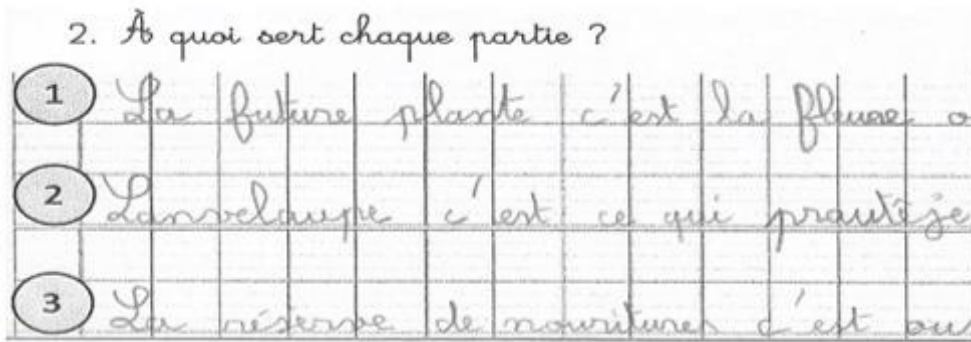 2. À quoi sert chaque partie ?
1 La future plante c'est la fleure o
2 Lanvelaupe c'est ce qui prautéje
3 La réserve de nouritures c'est ou